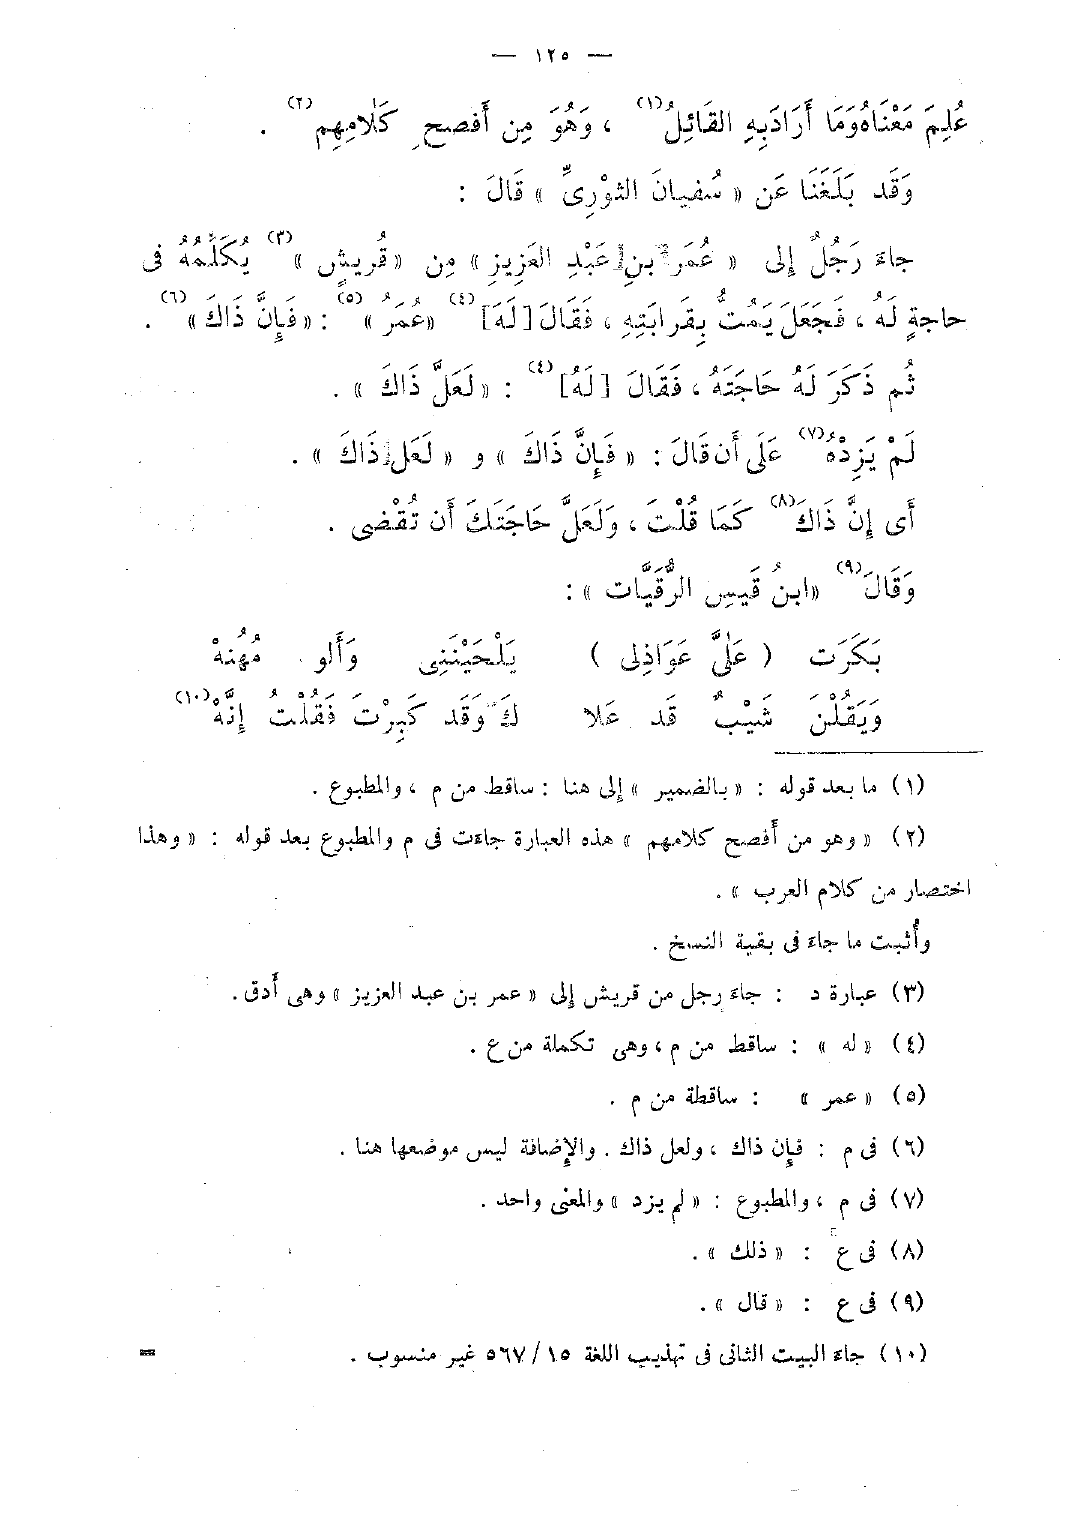 — ١٢٥ —
عُلِمَ مَعْنَاهُ وَمَا أَرَادَ بِهِ القَائِلُ(١) ، وَهُوَ مِن أَفصحِ كَلَامِهِم(٢) .
وَقَد بَلَغَنَا عَن « سُفيانَ الثوْرِيِّ » قَالَ :
جاءَ رَجُلٌ إلى « عُمَرَ بنِ عَبْدِ العَزِيزِ » مِن « قُريشٍ »(٣) يُكَلِّمُهُ فى
حاجةٍ لَهُ ، فَجَعَلَ يَمُتُّ بِقرابَتِهِ ، فَقَالَ [لَهُ](٤) «عُمَرُ »(٥) : « فَإِنَّ ذَاكَ »(٦) .
ثُم ذَكَرَ لَهُ حَاجَتَهُ ، فَقَالَ [لَهُ](٤) : « لَعَلَّ ذَاكَ » .
لَمْ يَزِدْهُ(٧) عَلَى أَن قَالَ : « فَإِنَّ ذَاكَ » و « لَعَل ذَاكَ » .
أَى إِنَّ ذَاكَ(٨) كَمَا قُلْتَ ، وَلَعَلَّ حَاجَتَكَ أَن تُقْضى .
وَقَالَ(٩) «ابنُ قَيسِ الرُّقَيَّات » :
بَكَرَت ( عَلَىَّ عَوَاذِلِى ) يَلْحَيْنَنِى وَأَلو مُهُنهْ
وَيَقُلْنَ شَيْبٌ قَد عَلا كَ وَقَد كَبِرْتَ فَقُلْتُ إِنَّهْ(١٠)
(١) ما بعد قوله : « بالضمير » إلى هنا : ساقط من م ، والمطبوع .
(٢) « وهو من أَفصح كلامهم » هذه العبارة جاءت فى م والمطبوع بعد قوله : « وهذا
اختصار من كلام العرب » .
وأُثبت ما جاءَ فى بقية النسخ .
(٣) عبارة د : جاءَ رجل من قريش إلى « عمر بن عبد العزيز » وهى أَدق .
(٤) « له » : ساقط من م ، وهى تكملة من ع .
(٥) « عمر » : ساقطة من م .
(٦) فى م : فإن ذاك ، ولعل ذاك . والإضافة ليس موضعها هنا .
(٧) فى م ، والمطبوع : « لم يزد » والمعنى واحد .
(٨) فى ع : « ذلك » .
(٩) فى ع : « قال » .
(١٠) جاء البيت الثانى فى تهذيب اللغة ١٥/ ٥٦٧ غير منسوب . =